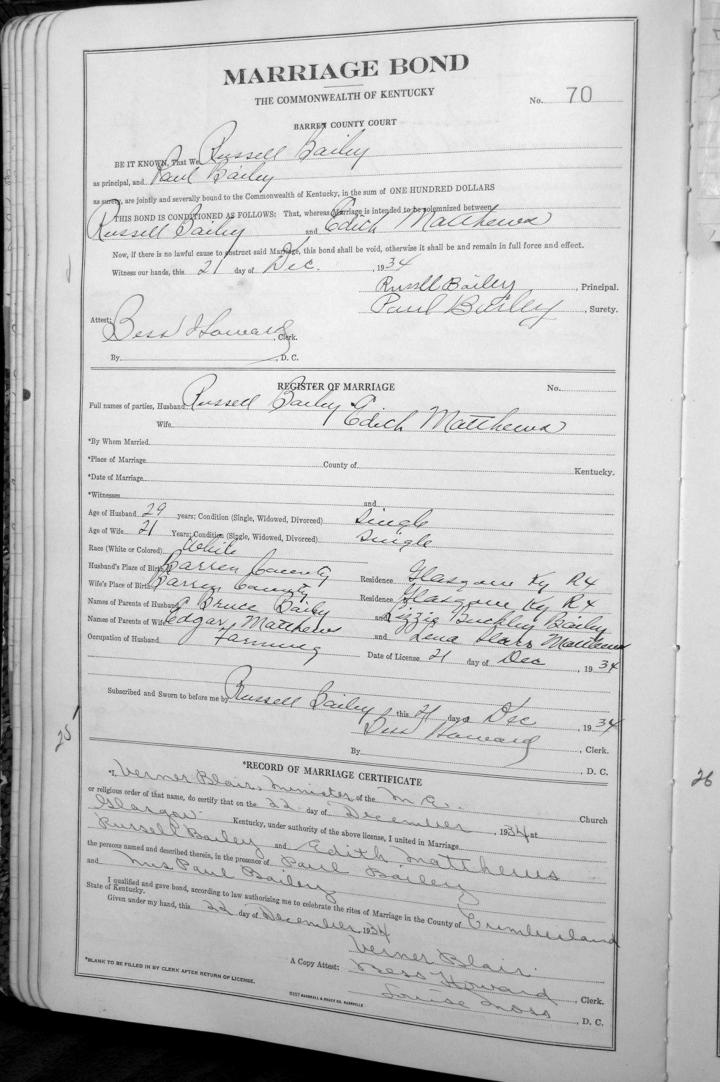 MARRIAGE BOND
THE COMMONWEALTH OF KENTUCKY
No. 70
BARREN COUNTY COURT
BE IT KNOWN, That We Russell Bailey
as principal, and Paul Bailey
as surety, are jointly and severally bound to the Commonwealth of Kentucky, in the sum of ONE HUNDRED DOLLARS
THIS BOND IS CONDITIONED AS FOLLOWS: That, whereas Marriage is intended to be solemnized between
Russell Bailey and Edith Matthews
Now, if there is no lawful cause to obstruct said Marriage, this bond shall be void, otherwise it shall be and remain in full force and effect.
Witness our hands, this 21 day of Dec. , 1934
Russell Bailey , Principal.
Paul Bailey , Surety.
Attest:
Bess Howard , Clerk.
By , D. C.
REGISTER OF MARRIAGE No.
Full names of parties, Husband Russell Bailey
Wife Edith Matthews
*By Whom Married
*Place of Marriage County of Kentucky.
*Date of Marriage
*Witnesses and
Age of Husband 29 years; Condition (Single, Widowed, Divorced) Single
Age of Wife 21 Years; Condition (Single, Widowed, Divorced) Single
Race (White or Colored) White
Husband's Place of Birth Barren County Residence Glasgow Ky R4
Wife's Place of Birth Barren County Residence Glasgow Ky R4
Names of Parents of Husband Bruce Bailey and Lizzie Buckley Bailey
Names of Parents of Wife Edgar Matthews and Lena Matthews
Occupation of Husband Farming Date of License 21 day of Dec , 1934
Subscribed and Sworn to before me by Russell Bailey , this 21 day of Dec 1934
Bess Howard , Clerk.
By , D. C.
25
26
*RECORD OF MARRIAGE CERTIFICATE
I, Verner Blair, Minister of the M. E. Church
or religious order of that name, do certify that on the 22 day of December , 1934 at
Glasgow Kentucky, under authority of the above license, I united in Marriage
Russell Bailey and Edith Matthews
the persons named and described therein, in the presence of Paul Bailey
and Mrs Paul Bailey
I qualified and gave bond, according to law authorising me to celebrate the rites of Marriage in the County of Cumberland
State of Kentucky.
Given under my hand, this 22 day of December 1934
Verner Blair.
A Copy Attest: Bess Howard , Clerk.
Louise , D. C.
*BLANK TO BE FILLED IN BY CLERK AFTER RETURN OF LICENSE.
MARSHALL & BRUCE CO. NASHVILLE